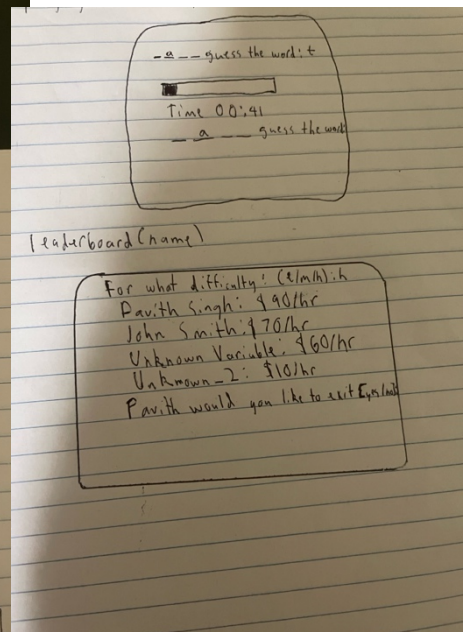 _ a _ _ guess the word: t
Time 00:41
_ a _ _ guess the word
leaderboard(name)
For what difficulty: (e/m/h): h
Pavith Singh: $90/hr
John Smith: $70/hr
Unknown Variable: $60/hr
Unknown_2: $10/hr
Pavith would you like to exit [yes/no]